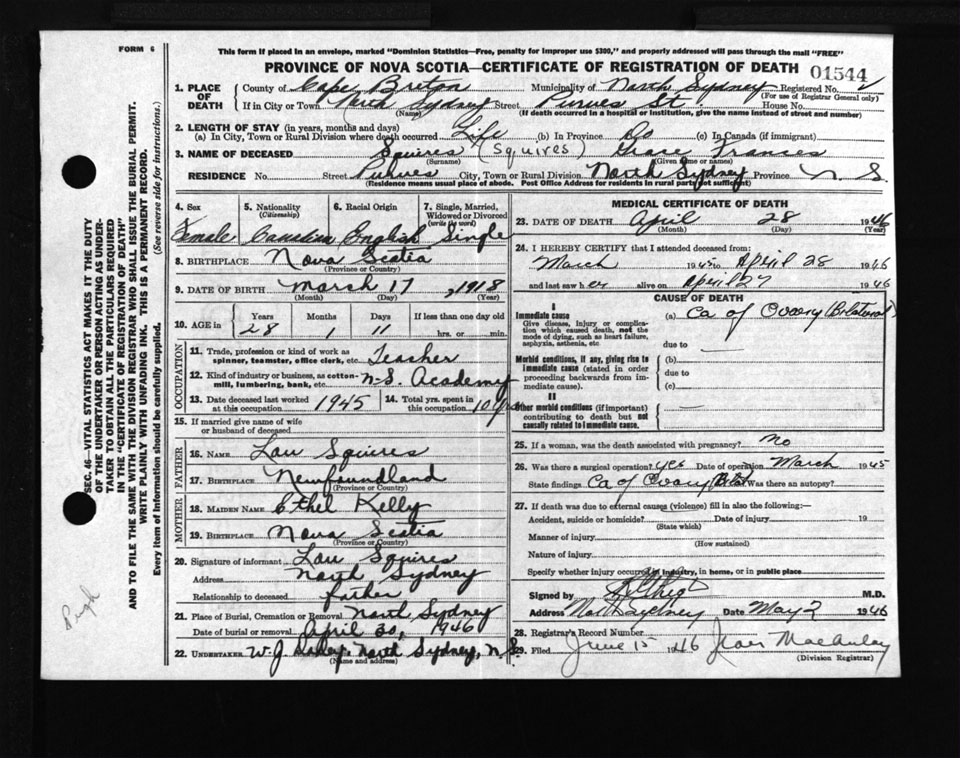 FORM 6
This form if placed in an envelope, marked "Dominion Statistics—Free, penalty for improper use $300," and properly addressed will pass through the mail "FREE"
PROVINCE OF NOVA SCOTIA—CERTIFICATE OF REGISTRATION OF DEATH 01544
1. PLACE OF DEATH County of Cape Breton Municipality of North Sydney Registered No.
(For use of Registrar General only)
If in City or Town North Sydney Street Purves St. House No.
(Name) (If death occurred in a hospital or institution, give the name instead of street and number)
2. LENGTH OF STAY (in years, months and days)
(a) In City, Town or Rural Division where death occurred Life (b) In Province Do (c) In Canada (if immigrant)
3. NAME OF DECEASED Squires (Squires) Grace Frances
(Surname) (Given name or names)
RESIDENCE No. Street Purves City, Town or Rural Division North Sydney Province N. S.
(Residence means usual place of abode. Post Office Address for residents in rural parts not sufficient)
4. Sex 5. Nationality (Citizenship) 6. Racial Origin 7. Single, Married, Widowed or Divorced (write the word)
Female Canadian English Single
8. BIRTHPLACE Nova Scotia
(Province or Country)
9. DATE OF BIRTH March 17, 1918
(Month) (Day) (Year)
10. AGE in Years Months Days If less than one day
28 1 11 hrs. or min.
OCCUPATION
11. Trade, profession or kind of work as spinner, teamster, office clerk, etc. Teacher
12. Kind of industry or business, as cotton-mill, lumbering, bank, etc. N-S. Academy
13. Date deceased last worked at this occupation 1945 14. Total yrs. spent in this occupation 10 yrs
15. If married give name of wife or husband of deceased
FATHER
16. NAME Lau Squires
17. BIRTHPLACE Newfoundland
(Province or Country)
MOTHER
18. MAIDEN NAME Ethel Kelly
19. BIRTHPLACE Nova Scotia
(Province or Country)
20. Signature of informant Lau Squires
Address North Sydney
Relationship to deceased Father
21. Place of Burial, Cremation or Removal North Sydney
Date of burial or removal April 30, 1946
22. UNDERTAKER W. J. North Sydney, N. S.
(Name and address)
MEDICAL CERTIFICATE OF DEATH
23. DATE OF DEATH April 28 1946
(Month) (Day) (Year)
24. I HEREBY CERTIFY that I attended deceased from:
March 1945 to April 28 1946
and last saw her alive on April 27 1946
CAUSE OF DEATH
I
Immediate cause (a) Ca of Ovary (Bilateral)
Give disease, injury or complication which caused death, not the mode of dying, such as heart failure, asphyxia, asthenia, etc
due to
Morbid conditions, if any, giving rise to immediate cause (stated in order proceeding backwards from immediate cause). (b)
due to
(c)
II
Other morbid conditions (if important) contributing to death but not causally related to immediate cause.
25. If a woman, was the death associated with pregnancy? No
26. Was there a surgical operation? yes Date of operation March 1945
State findings Ca of Ovary Bilat Was there an autopsy?
27. If death was due to external causes (violence) fill in also the following:—
Accident, suicide or homicide? Date of injury 19
(State which)
Manner of injury
(How sustained)
Nature of injury
Specify whether injury occurred in industry, in home, or in public place
Signed by M.D.
Address North Sydney Date May 2 1946
28. Registrar's Record Number
29. Filed June 15 1946 Jean MacAulay
(Division Registrar)
SEC. 46—VITAL STATISTICS ACT MAKES IT THE DUTY
OF THE UNDERTAKER OR PERSON ACTING AS UNDERTAKER TO OBTAIN ALL THE PARTICULARS REQUIRED
IN THE "CERTIFICATE OF REGISTRATION OF DEATH"
AND TO FILE THE SAME WITH THE DIVISION REGISTRAR WHO SHALL ISSUE THE BURIAL PERMIT.
WRITE PLAINLY WITH UNFADING INK. THIS IS A PERMANENT RECORD.
Every item of Information should be carefully supplied. (See reverse side for instructions.)